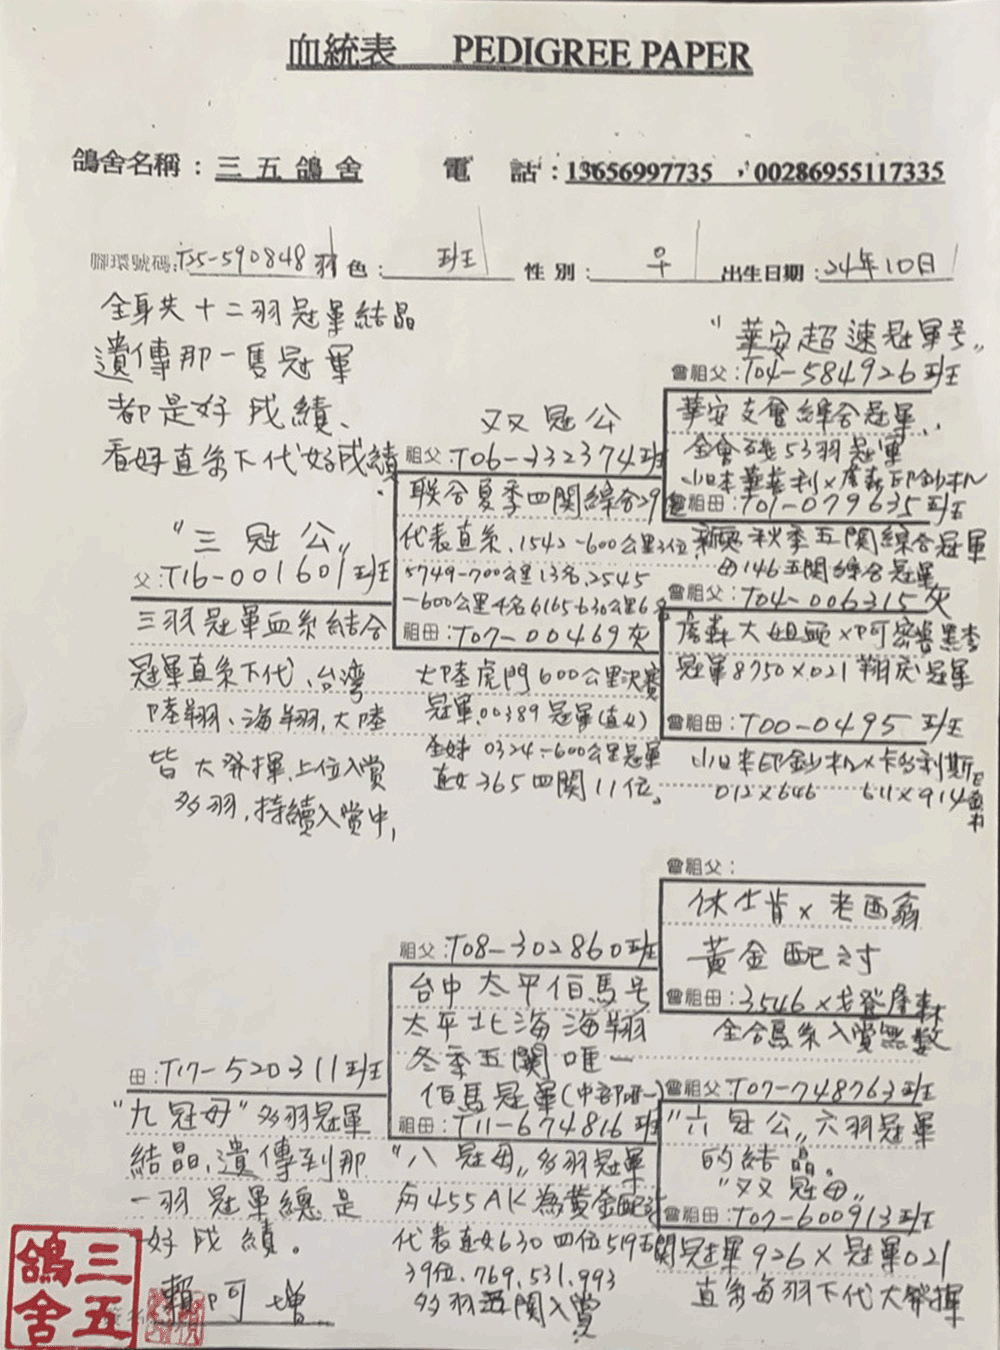 血統表 PEDIGREE PAPER
鴿舍名稱：三五鴿舍 電話：13656997735，00286955117335
腳環號碼：T25-590848 羽色：斑 性別：♀ 出生日期：24年10日
全身共十二羽冠軍結晶
遺傳那一隻冠軍
都是好成績、
看好直系下代好成績.
"三冠公"
父：T16-001601 斑
三羽冠軍血系結合
冠軍直系下代、台灣
陸翔、海翔，大陸
皆大發揮，上位入賞
多羽，持續入賞中，
双冠公
祖父：T06-332374斑
联合夏季四関綜合29位
代表直系、1542-600公里3位
5749-700公里13名、2545
-600公里4名6165-630公里6名
祖母：T07-00469灰
大陸虎門600公里決賽
冠軍、00389冠軍(直女)
全妹0324-600公里冠軍
直女365四関11位。
"華安超速冠軍号"
曾祖父：T04-584926斑
華安支會綜合冠軍、
全會殘53羽冠軍
小日本華喜利x詹森印鈔机
曾祖母：T01-079635斑
秋季五関綜合冠軍
146五関綜合冠軍
曾祖父：T04-006315灰
詹森大姐頭x阿密
冠軍8750x021翔虎冠軍
曾祖母：T00-0495 斑
小日本印鈔机x卡多利斯
012x646 611x914
母：T17-520311斑
"九冠母"多羽冠軍
結晶、遺傳到那
一羽冠軍總是
好成績。
祖父：T08-302860斑
台中太平佰馬号
太平北海海翔
冬季五関唯一
佰馬冠軍(中部唯一)
祖母：T11-674816斑
"八冠母"多羽冠軍
與455AK為黃金配对
代表直女630四位519五関
39位.769.531.993
多羽五関入賞
曾祖父：
休士肯x老西翁
黃金配对
曾祖母：3546x戈登詹森
全合馬系入賞無數
曾祖父：T07-748763斑
"六冠公"六羽冠軍
的結晶。
"双冠母"
曾祖母：T07-600913斑
冠軍926x冠軍021
直系每羽下代大發揮
三五鴿舍
賴阿增